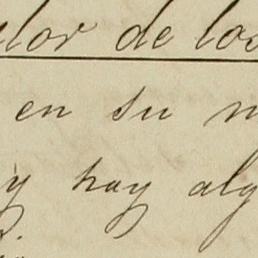 lor de los
en su
y hay alg